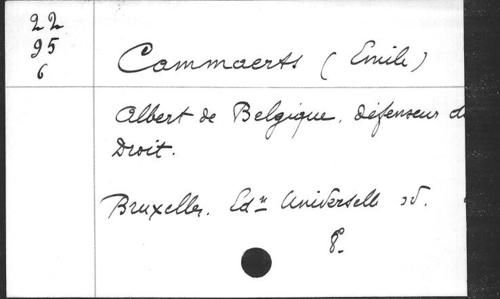 22
95
6
Cammaerts (Emile)
Albert de Belgique, défenseur du
Droit.
Bruxelles. Edⁿ Universelle sd.
8°